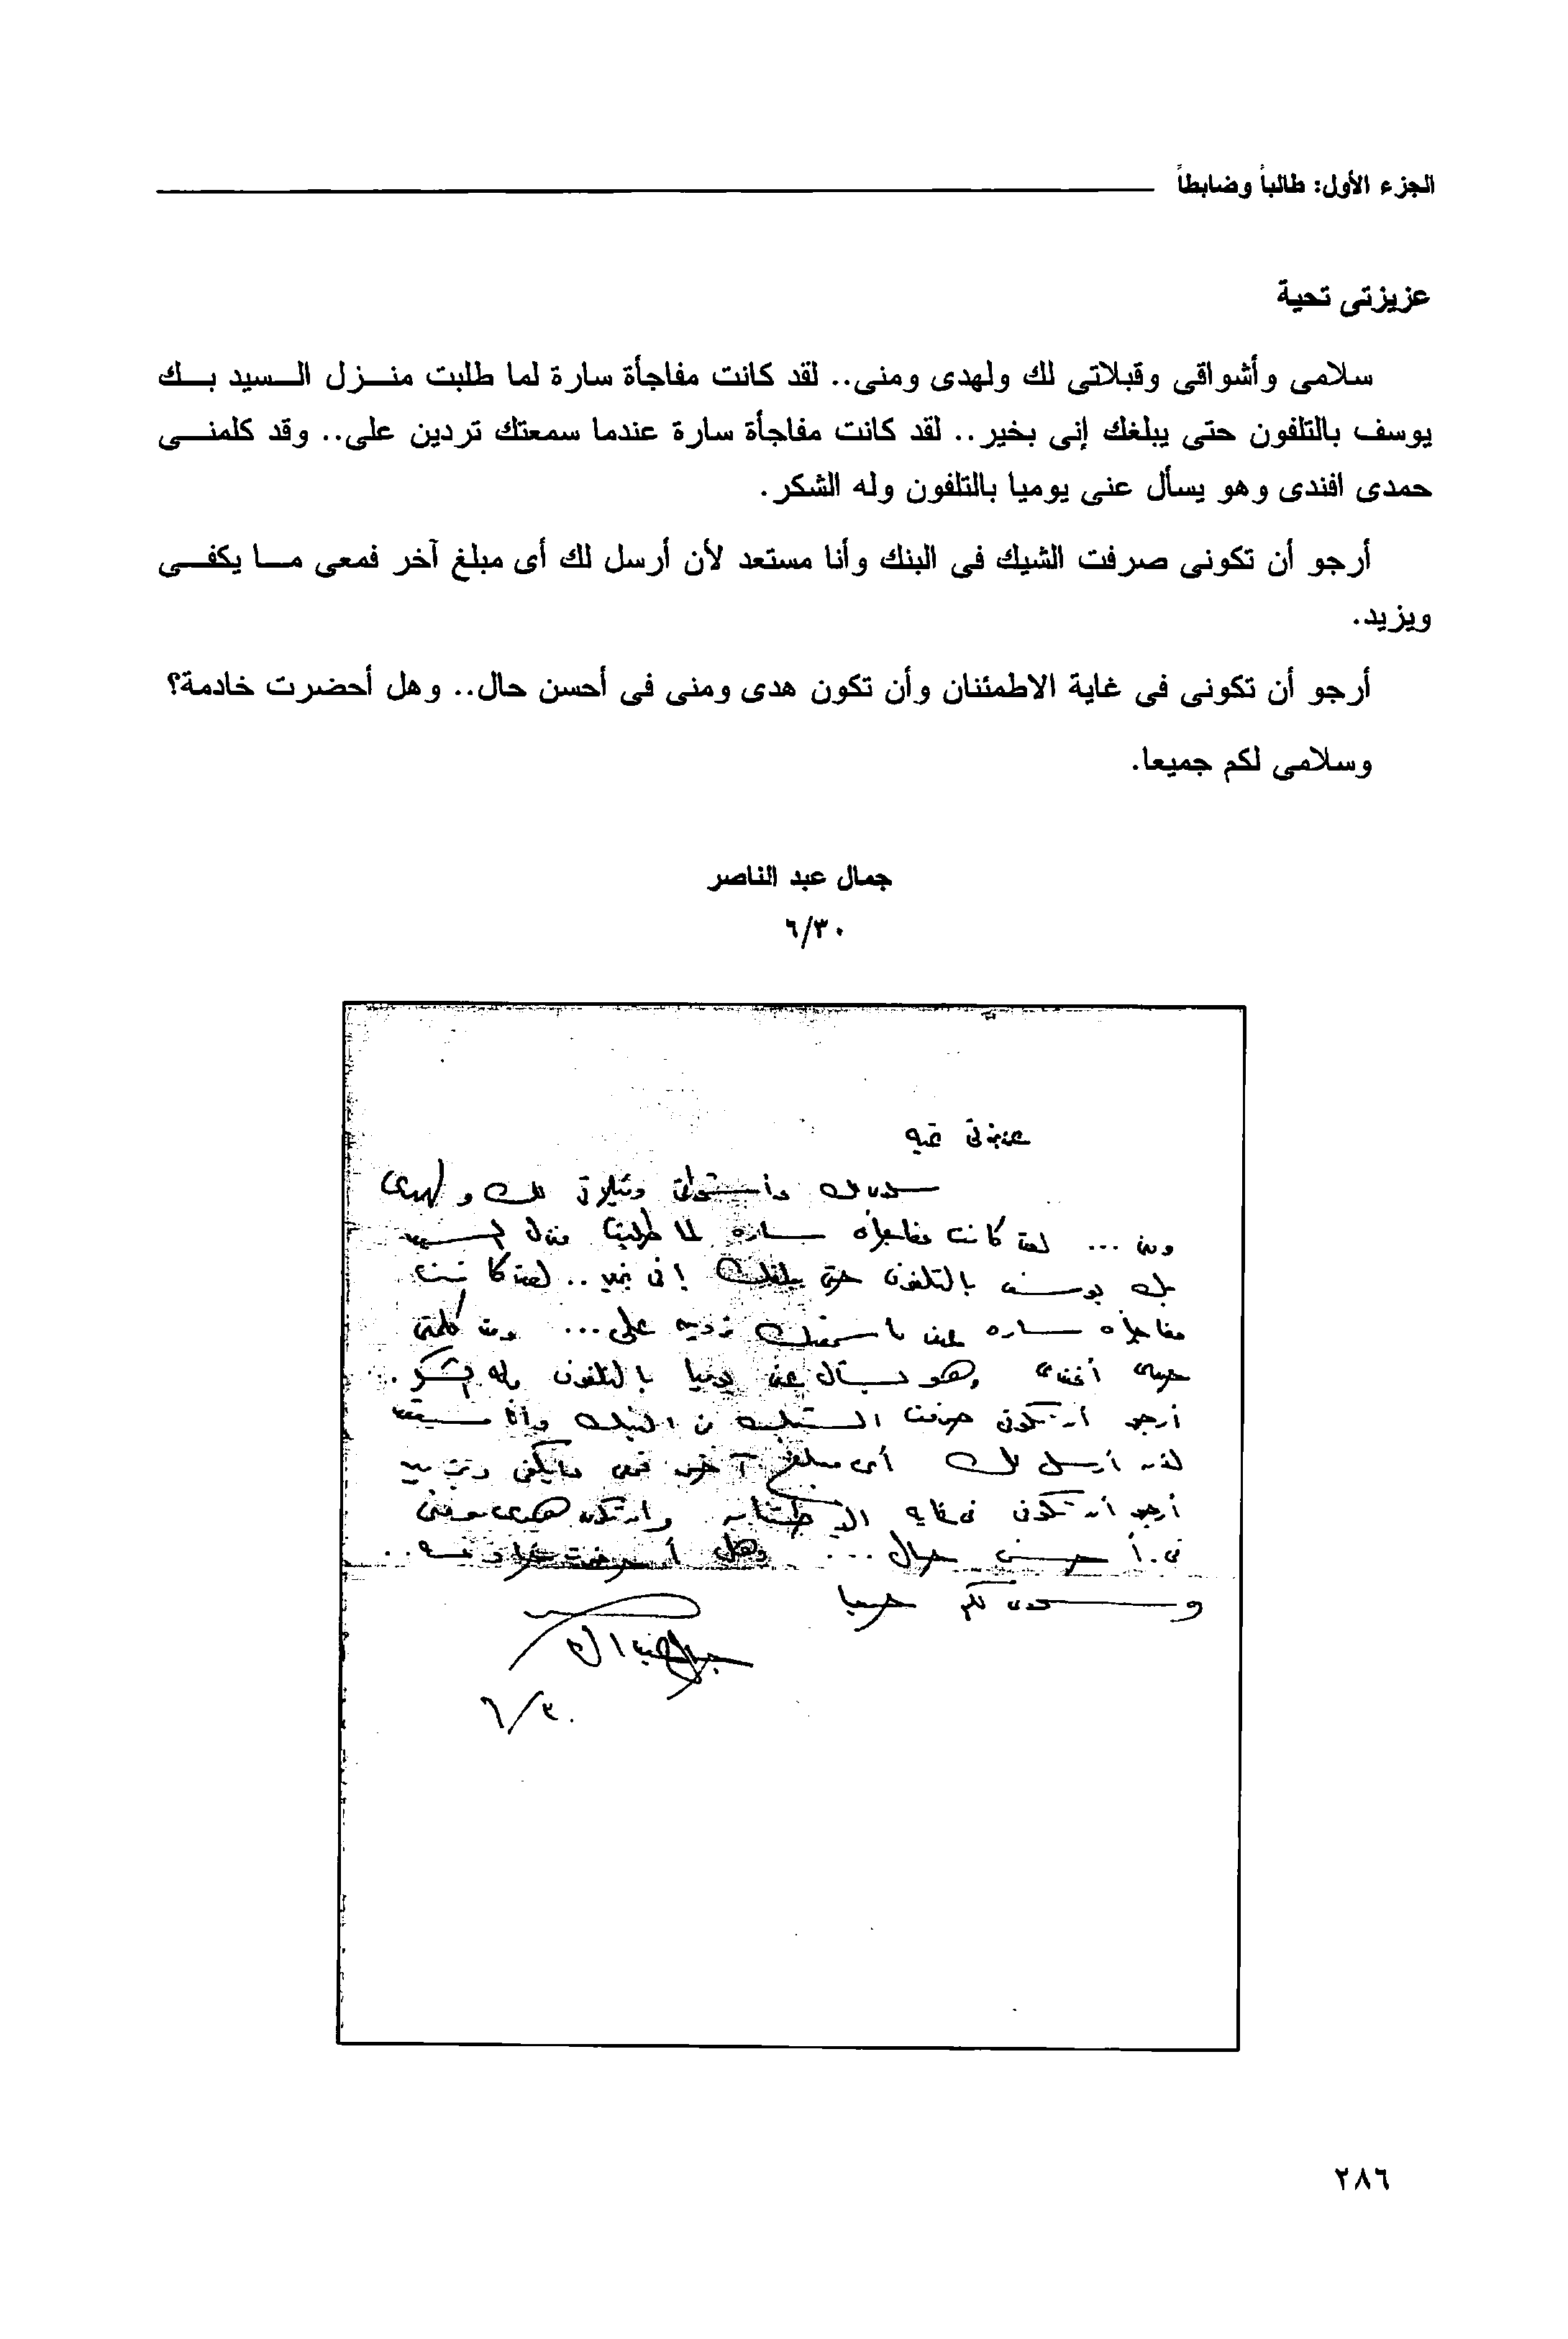 الجزء الأول: طالباً وضابطاً
عزيزتى تحية
سلامى وأشواقى وقبلاتى لك ولهدى ومنى.. لقد كانت مفاجأة سارة لما طلبت منزل السيد بك
يوسف بالتلفون حتى يبلغك إنى بخير.. لقد كانت مفاجأة سارة عندما سمعتك تردين على.. وقد كلمنى
حمدى افندى وهو يسأل عنى يوميا بالتلفون وله الشكر.
أرجو أن تكونى صرفت الشيك فى البنك وأنا مستعد لأن أرسل لك أى مبلغ آخر فمعى ما يكفى
ويزيد.
أرجو أن تكونى فى غاية الاطمئنان وأن تكون هدى ومنى فى أحسن حال.. وهل أحضرت خادمة؟
وسلامى لكم جميعا.
جمال عبد الناصر
٦/٣٠
عزيزتى تحيه
سلامى وأشواقى وقبلاتى لك ولهدى
ومنى ... لقد كانت مفاجأه ساره لما طلبت منزل السيد
بك يوسف بالتلفون حتى يبلغك إنى بخير .. لقد كانت
مفاجأه ساره عندما سمعتك تردين على ... وقد كلمنى
حمدى أفندى وهو يسأل عنى يوميا بالتلفون وله الشكر .
أرجو أن تكونى صرفت الشيك فى البنك وأنا مستعد
لأن أرسل لك أى مبلغ آخر فمعى ما يكفى ويزيد
أرجو أن تكونى فى غايه الاطمئنان وأن تكون هدى ومنى
فى أحسن حال ... وهل أحضرت خادمه ..
وسلامى لكم جميعا
جمال عبد الناصر
٦/٣٠
٢٨٦